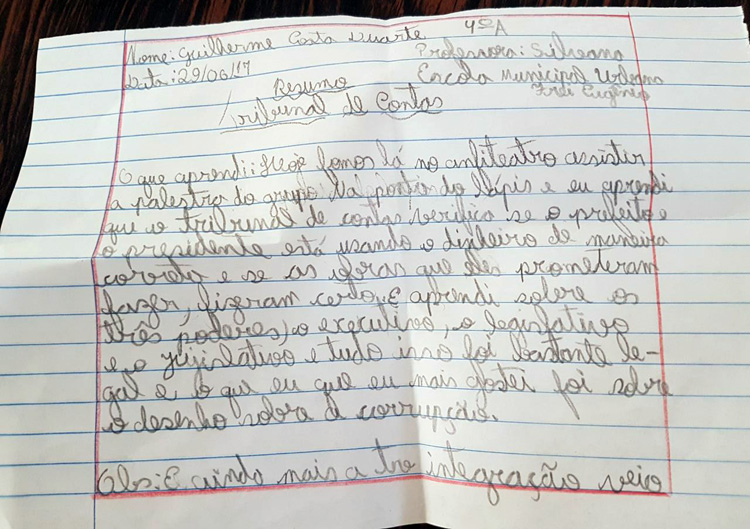 Nome: Guilherme Costa Duarte 4ºA
Data: 29/06/17 Professora: Silvana
Escola Municipal Urbana
Frei Eugênio
Resumo
Tribunal de Contas
O que aprendi: Hoje fomos lá no anfiteatro assistir
a palestra do grupo Na ponta do lápis e eu aprendi
que o tribunal de contas verifica se o prefeito e
o presidente está usando o dinheiro de maneira
correta e se as obras que eles prometeram
fazer, fizeram certo. E aprendi sobre os
três poderes, o executivo, o legislativo
e o jujislativo e tudo isso foi bastante le-
gal e o que eu que eu mais gostei foi sobre
o desenho sobre a corrupção.
Obs: E ainda mais a tro integração veio